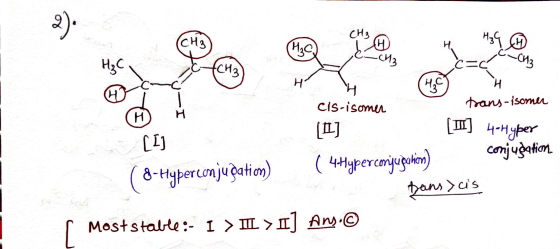 2).
CH₃
H₃C
C
C
CH₃
H
C
H
H
[I]
(8-Hyperconjugation)
CH₃
H₃C
C
H
CH₃
H
H
cis-isomer
[II]
(4-Hyperconjugation)
H₃C
H
H
C
CH₃
C=C
H₃C
H
trans-isomer
[III] 4-Hyper
conjugation
trans>cis
[ Most stable:- I > III > II] Ans.©